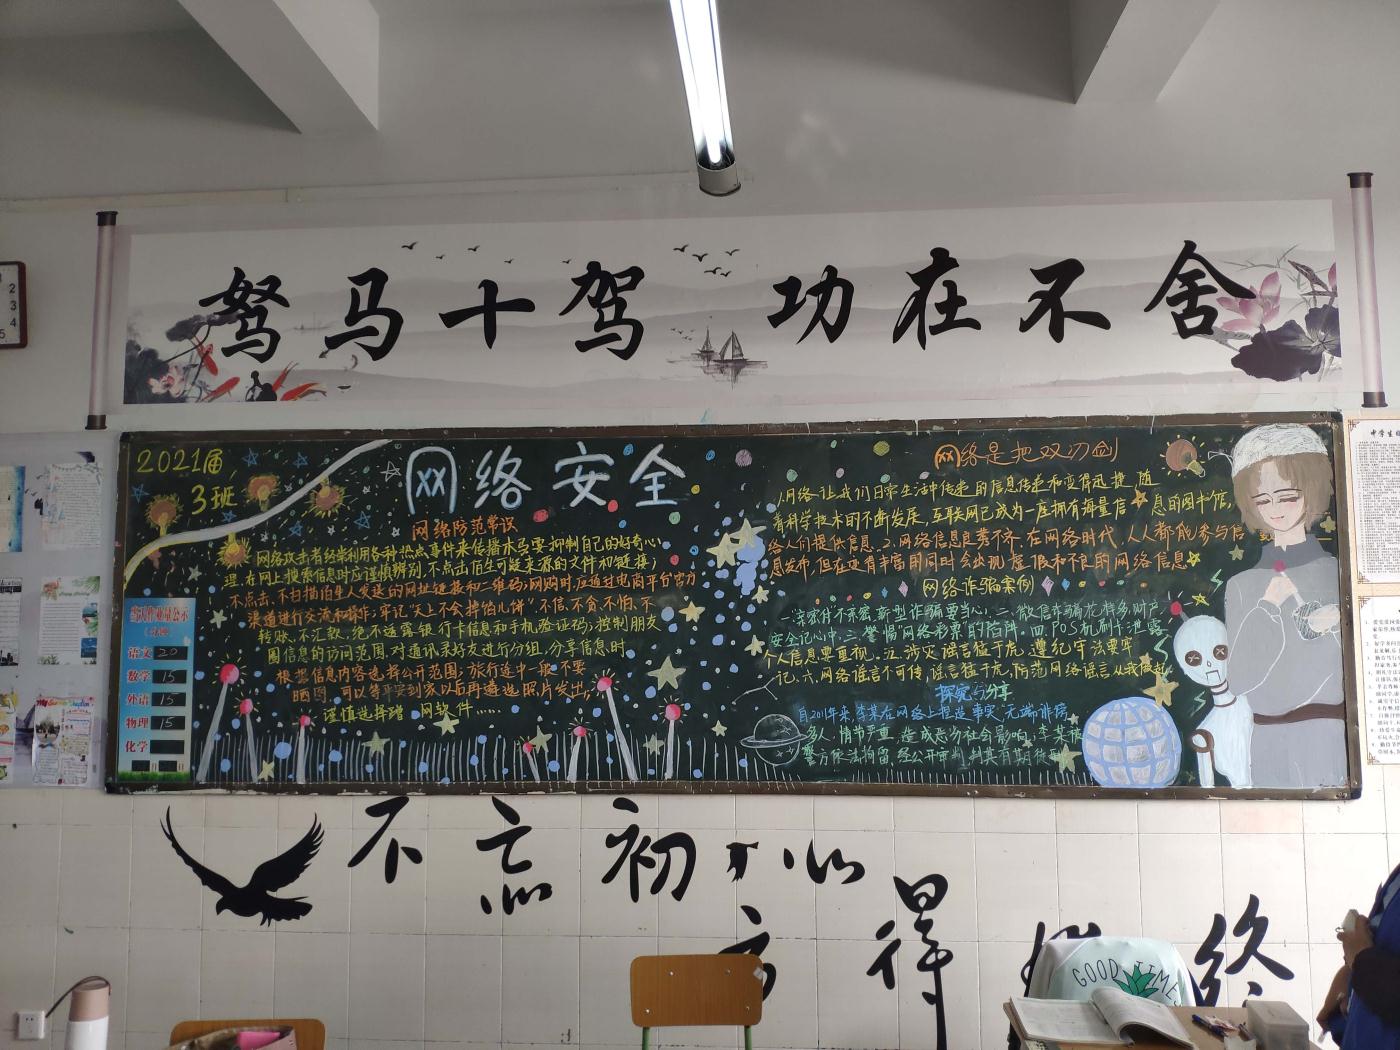 驽马十驾 功在不舍
2021届
3班
网络安全
网络防范常识
网络攻击者经常利用各种热点事件来传播木马要抑制自己的好奇心
理,在网上搜索信息时应谨慎辨别,不点击陌生可疑来源的文件和链接;
不点击、不扫描陌生人发送的网址链接和二维码;网购时,应通过电商平台官方
渠道进行交流和操作,牢记"天上不会掉馅儿饼",不信、不贪、不怕、不
转账、不汇款,绝不透露银行卡信息和手机验证码;控制朋友
圈信息的访问范围,对通讯录好友进行分组,分享信息时
根据信息内容选择公开范围;旅行途中一般不要
晒图,可以等平安到家以后再遴选照片发出;
谨慎选择 网软件……
当天作业量公示
语文 20
数学 15
外语 15
物理 15
化学
网络是把双刃剑
1.网络让我们日常生活中传递的信息传递和变得迅捷,随
着科学技术的不断发展,互联网已成为一座拥有海量信息的图书馆,
给人们提供信息。2.网络信息良莠不齐,在网络时代,人人都能参与信
息发布,但在还有丰富用同时会出现虚假和不良的网络信息
网络诈骗案例
新型诈骗要当心,二、微信诈骗花样多,财产
安全记心中,三、警惕"网络彩票"的陷阱,四、POS机刷卡泄露
个人信息要重视,五、涉灾谣言猛于虎,遵纪守法要牢
记,六、网络谣言不可传,谣言猛于虎,防范网络谣言从我做起
探究与分享
自2011年来,李某在网络上捏造事实,无端诽谤
多人,情节严重,造成恶劣社会影响,李某被
警方依法拘留,经公开审判,判其有期徒刑
不忘初心
方得 终
GOOD TIMES
中学生